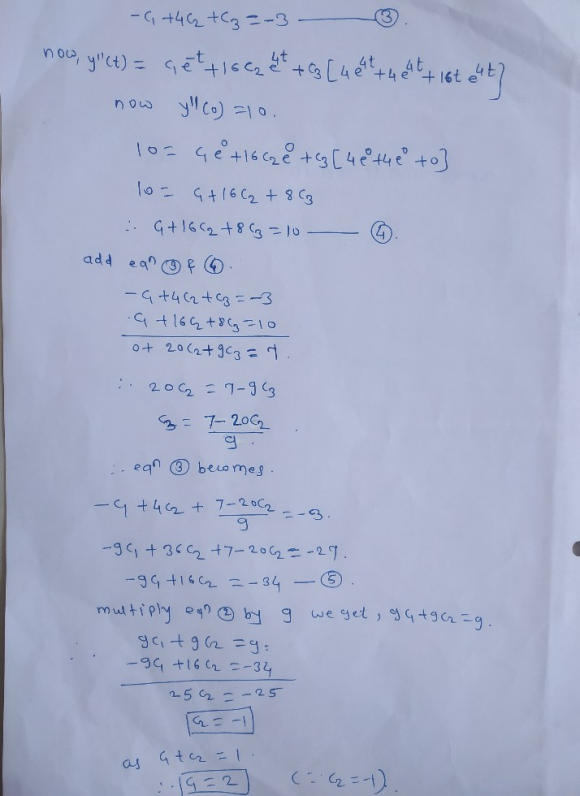 -c₁+4c₂+c₃=-3 ——— ③.
now, y''(t) = c₁e⁻ᵗ+16c₂e⁴ᵗ+c₃[4e⁴ᵗ+4e⁴ᵗ+16te⁴ᵗ]
now y''(0)=10.
10= c₁e⁰+16c₂e⁰+c₃[4e⁰+4e⁰+0]
10= c₁+16c₂+8c₃
∴ c₁+16c₂+8c₃=10 —— ④.
add eqⁿ ③ & ④.
-c₁+4c₂+c₃=-3
c₁+16c₂+8c₃=10
0+ 20c₂+9c₃=7.
∴ 20c₂ = 7-9c₃
c₃ = 7-20c₂ / 9.
∴ eqⁿ ③ becomes.
-c₁+4c₂+ 7-20c₂ / 9 =-3.
-9c₁+36c₂+7-20c₂=-27.
-9c₁+16c₂ =-34 —⑤.
multiply eqⁿ ② by 9 we get, 9c₁+9c₂=9.
∴ 9c₁+9c₂=9.
-9c₁+16c₂=-34
25c₂=-25
c₂=-1
as c₁+c₂=1.
∴ c₁=2 (∵ c₂=-1).